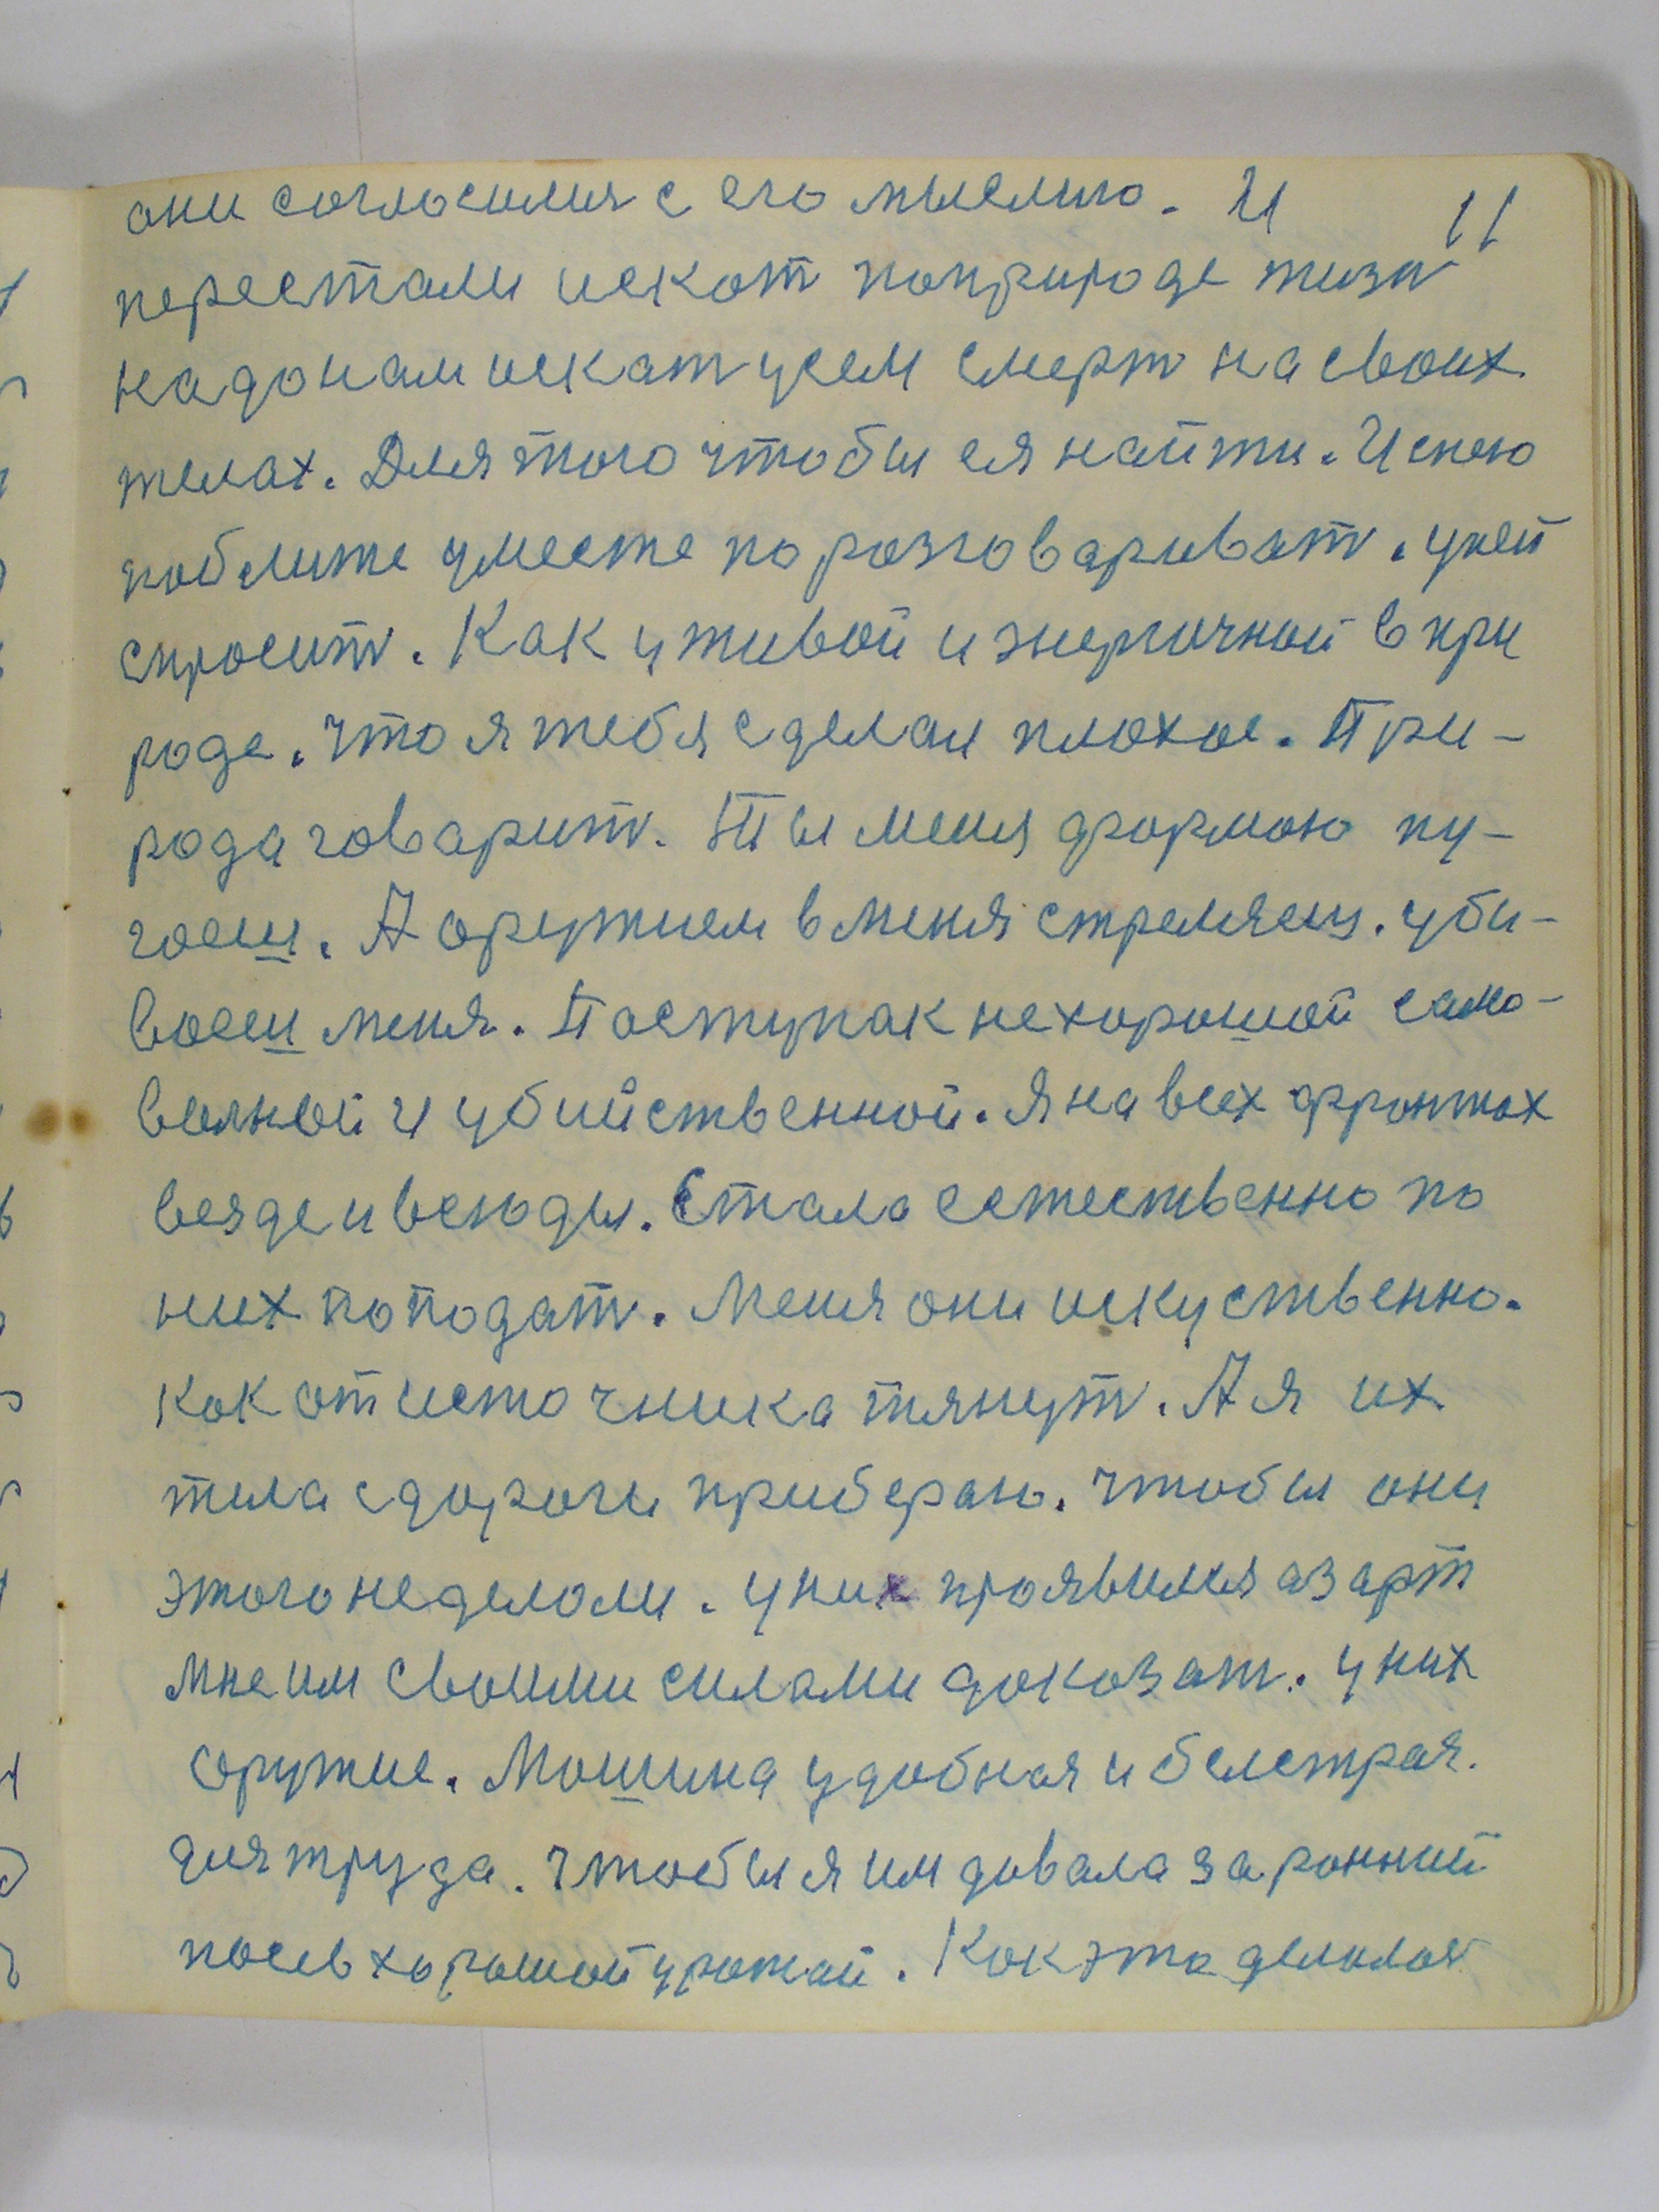 они согласились с его мыслию. И
11
перестали искат поприроде жизн
надо нам искат усем смерт на своих
телах. Для того чтобы ея найти. И с нею
поближе уместе поразговариват. у ней
спросит. Как у живой и энергичной в при
роде. что я тебя сделал плохое. При-
рода говарит. Ты меня формою пу-
гаеш. А оружием в меня стреляеш. уби-
ваеш меня. Поступак нехорошой само-
волной и убийственной. Я на всех фронтах
везде и всюды. Стала естественно по
них поподат. Меня они искуственно.
как от источника тянут. А я их
тила с дороги приберою. чтобы они
этого неделоли. у них проявился азарт
мне им своими силами доказат. у них
оружие. Мошина удобная и быстрая.
для труда. чтобы я им довала за ронний
посев хорошой урожай. Как это делалос